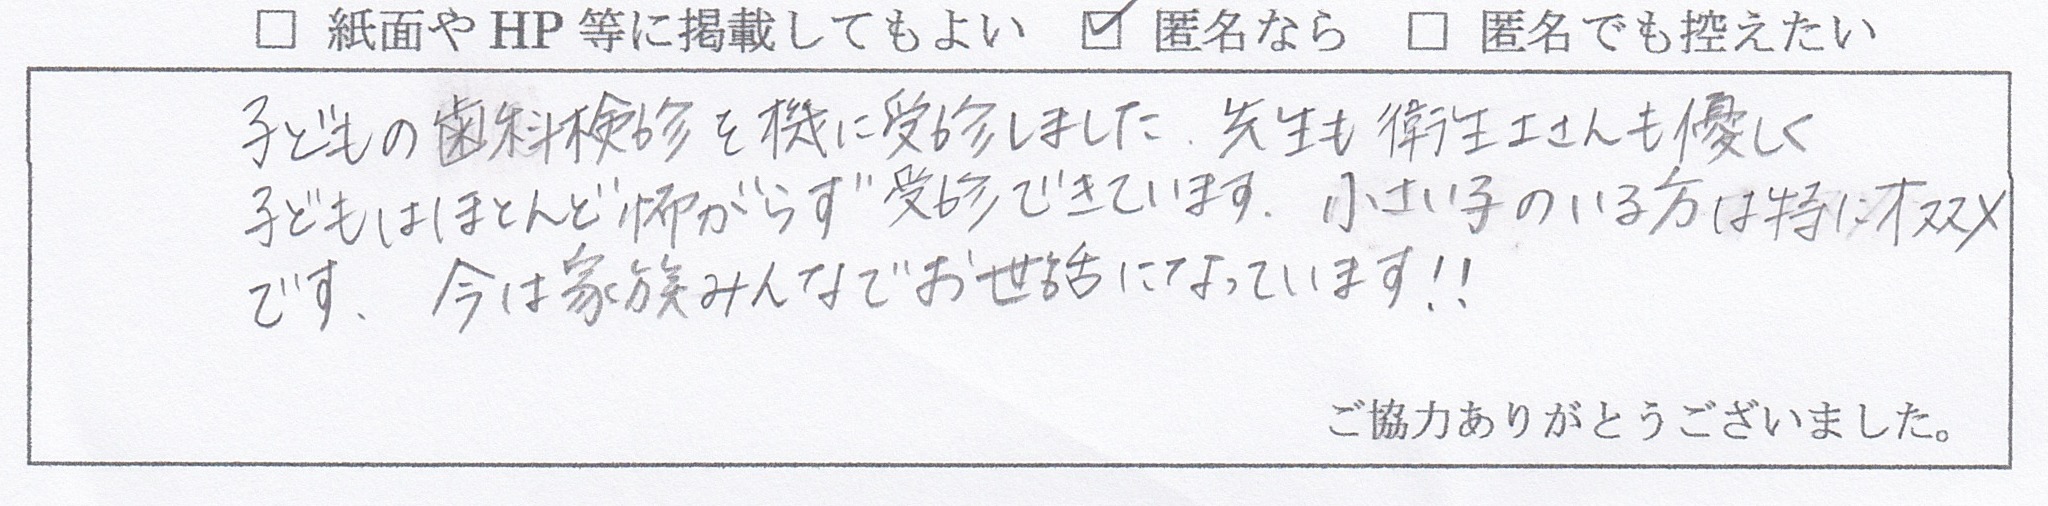 ☐ 紙面や HP 等に掲載してもよい ☑ 匿名なら ☐ 匿名でも控えたい
子どもの歯科検診を機に受診しました. 先生も衛生士さんも優しく
子どもはほとんど怖がらず受診できています. 小さい子のいる方は特にオススメ
です. 今は家族みんなでお世話になっています!!
ご協力ありがとうございました。